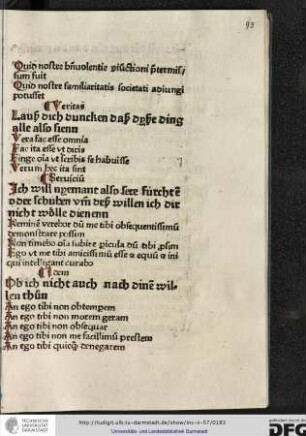 93
Quid nostre bn̄volentie ɔiūctioni p̄termis/
sum fuit
Quid nostre familiaritatis societati adiungi
potuisset
¶ Veritas
Lauß dich duncken daß dyße ding
alle also sienn
Vera fac esse omnia
Fac ita esse vt dicis
Finge oīa vt scribis se habuisse
Verum hec ita sint
¶ Serviciū
Ich will nyemant also sere fürchtē
oder schuhen vm deß willen ich dir
nicht wölle dienenn
Neminē verebor dū me tibi obsequentissimū
demonstrare possim
Non timebo oīa subire ꝑicula dū tibi ꝓsim
Ego vt me tibi amicissimū esse ⁊ equū ⁊ ini
qui intelligant curabo
¶ Idem
Ob ich nicht auch nach dinē wil/
len thün
An ego tibi non obtempem
An ego tibi non morem geram
An ego tibi non obsequar
An ego tibi non me facillimū prestem
An ego tibi quicq̄ denegarem
TECHNISCHE
UNIVERSITÄT
DARMSTADT
http://tudigit.ulb.tu-darmstadt.de/show/inc-ii-57/0183
Universitäts- und Landesbibliothek Darmstadt
DFG